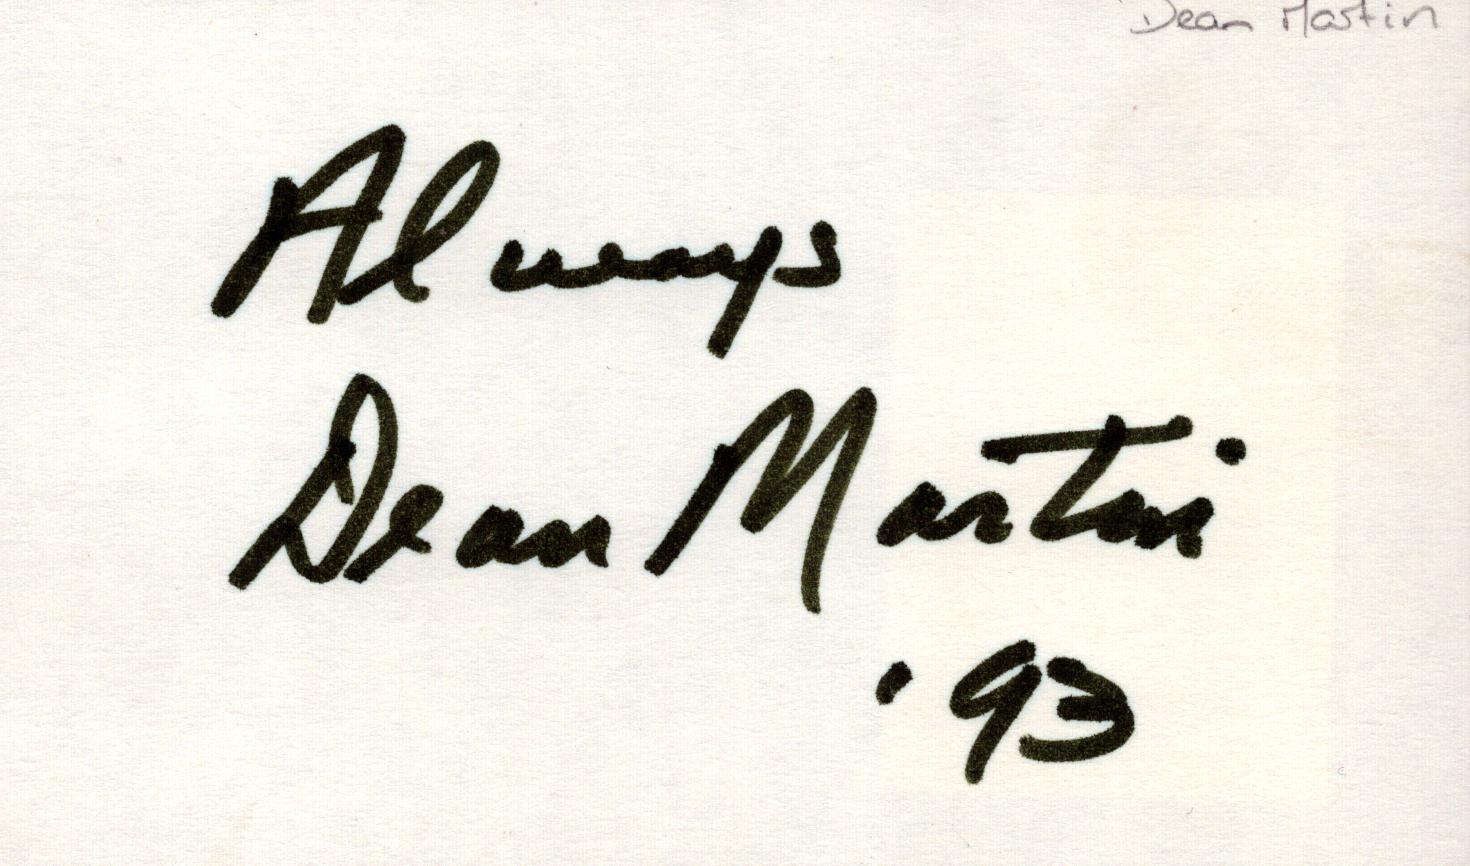 Dean Martin
Always
Dean Martin
'93